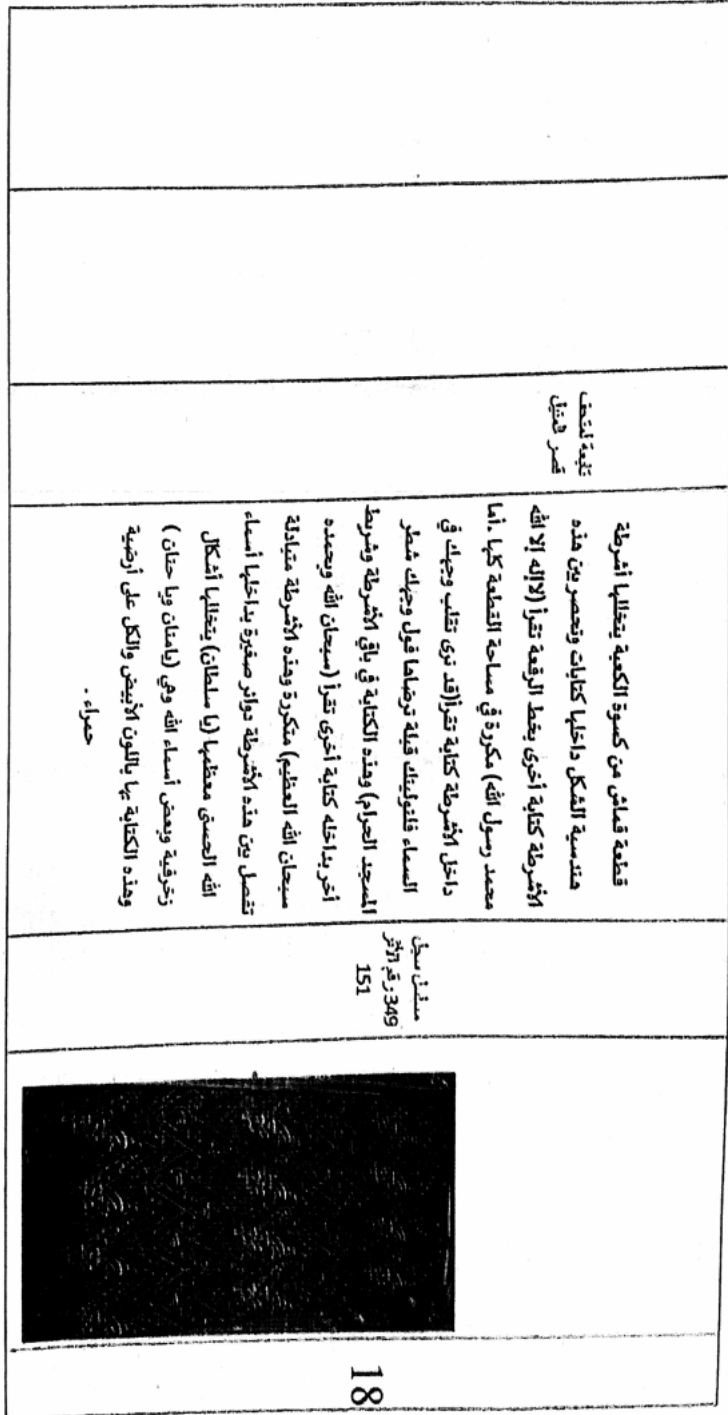 18
مسلسل سجل
349 رقم الأثر
151
قطعة قماش من كسوة الكعبة يتخللها أشرطة
هندسية الشكل داخلها كتابات وتحصر بين هذه
الأشرطة كتابة أخرى بخط الرقعة تقرأ (لا إله إلا الله
محمد رسول الله) مكررة في مساحة القطعة كلها .أما
داخل الأشرطة كتابة تقرأ(قد نرى تقلب وجهك في
السماء فلنولينك قبلة ترضاها فول وجهك شطر
المسجد الحرام) وهذه الكتابة في باقي الأشرطة وشريط
أخر بداخله كتابة أخرى تقرأ (سبحان الله وبحمده
سبحان الله العظيم) متكررة وهذه الأشرطة متبادلة
تفصل بين هذه الأشرطة دوائر صغيرة بداخلها أسماء
الله الحسنى معظمها (يا سلطان) يتخللها أشكال
زخرفية وبعض أسماء الله وهي (يامنان ويا حنان )
وهذه الكتابة بها باللون الأبيض والكل على أرضية
حمراء .
لمتحف
قصر